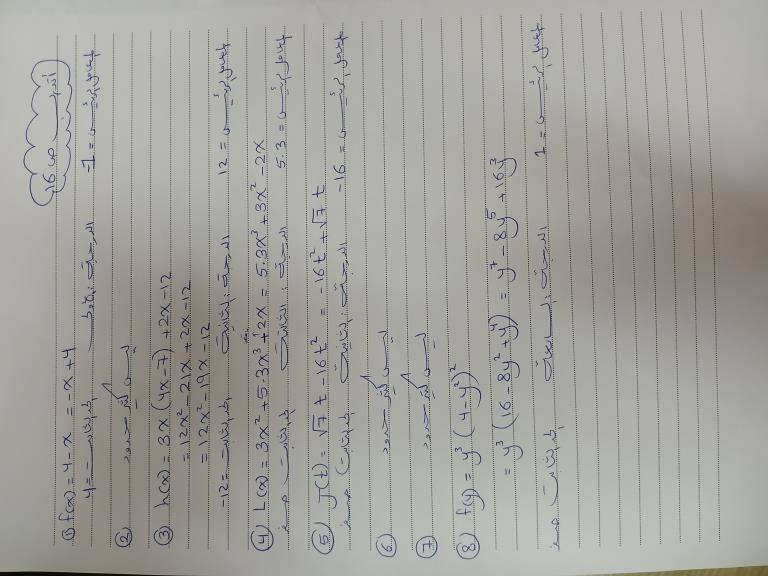 أتدرب ص 16
① f(x) = 4 - x = -x + 4
4 = الحد الثابت الدرجة: الأولى -1 = المعامل الرئيس
② ليست كثير حدود
③ h(x) = 3x(4x-7) + 2x - 12
= 12x² - 21x + 2x - 12
= 12x² - 19x - 12
-12 = الحد الثابت الدرجة: الثانية 12 = المعامل الرئيس
④ L(x) = 3x² + 5.3x³ - 2x = 5.3x³ + 3x² - 2x
الحد الثابت صفر الدرجة: الثالثة 5.3 = المعامل الرئيس
⑤ J(t) = √7 t - 16t² = -16t² + √7 t
الحد الثابت صفر الدرجة: الثانية -16 = المعامل الرئيس
⑥ ليست كثير حدود
⑦ ليست كثير حدود
⑧ f(y) = y³(4-y²)²
= y³(16 - 8y² + y⁴) = y⁷ - 8y⁵ + 16y³
الحد الثابت صفر الدرجة: السابعة 1 = المعامل الرئيس